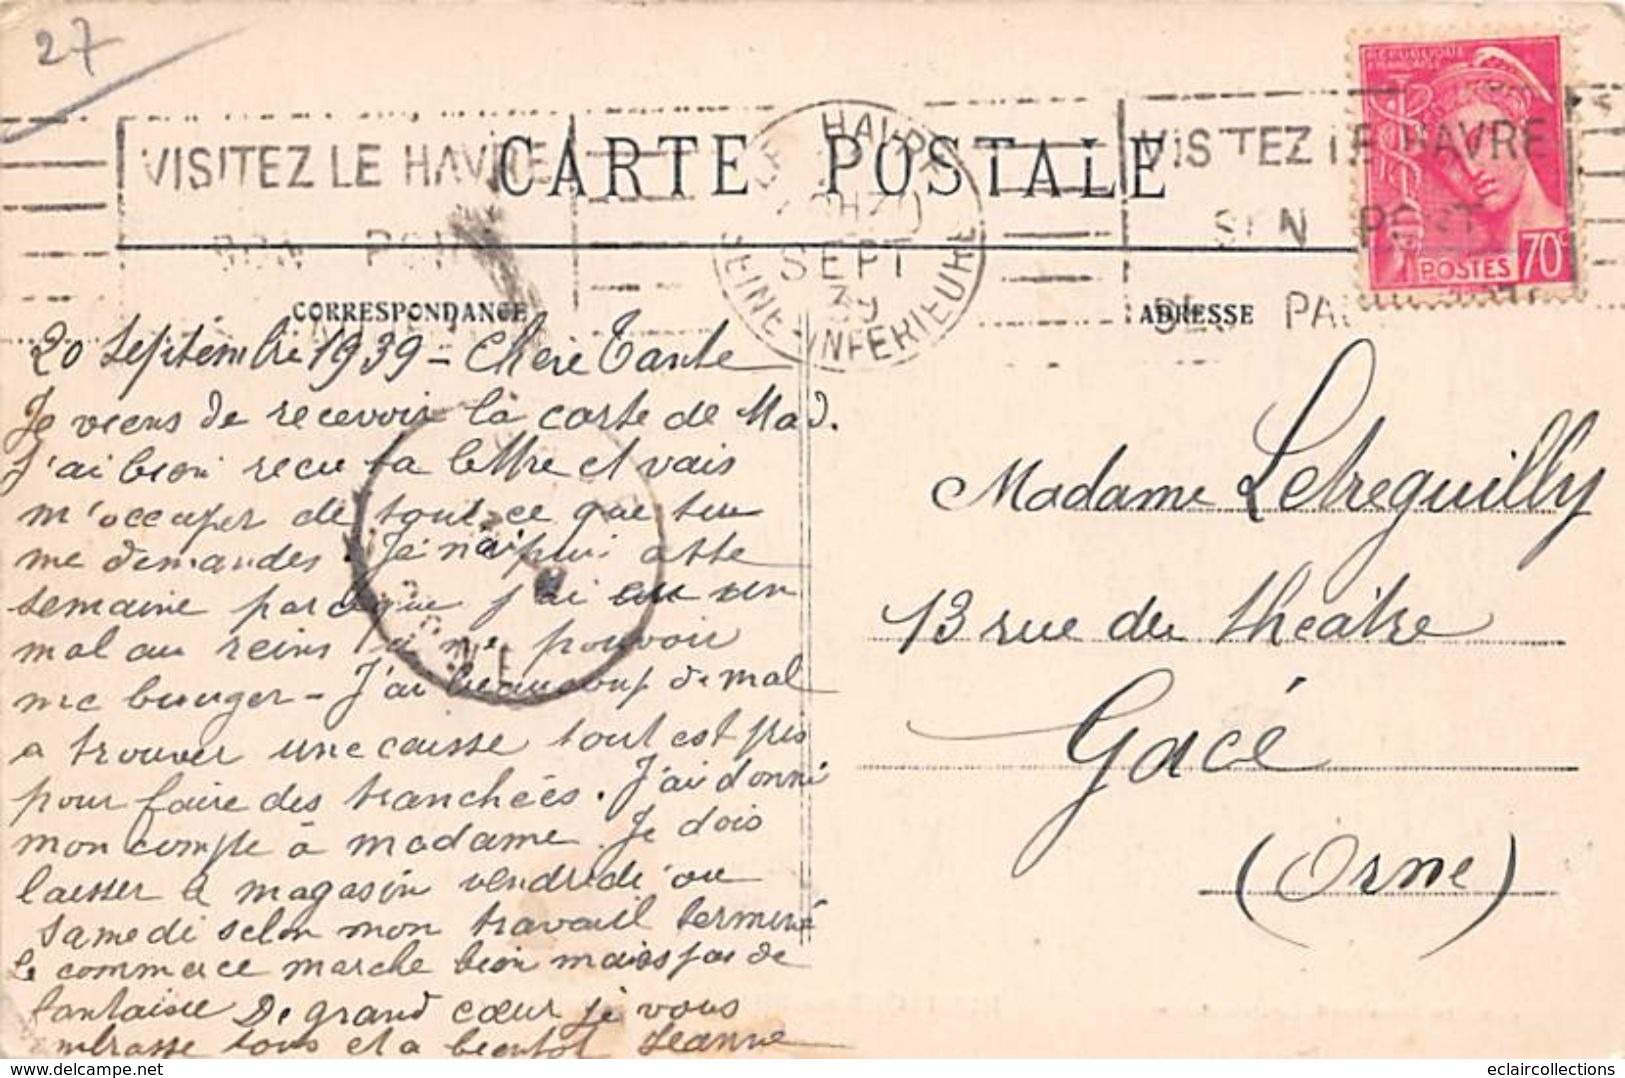 27
VISITEZ LE HAVRE
SON PORT
CARTE POSTALE
LE HAVRE
SEPT
39
SEINE-INFERIEURE
VISITEZ LE HAVRE
SON PORT
REPUBLIQUE
FRANCAISE
POSTES 70c
CORRESPONDANCE
ADRESSE
20 Septembre 1939 - Chère Tante
Je viens de recevoir la carte de Mad.
J'ai bien reçu ta lettre et vais
m'occuper de tout ce que tu
me demandes. Je n'ai pu cette
semaine parceque j'ai eu un
mal au reins à ne pouvoir
me bouger - J'ai beaucoup de mal
a trouver une caisse tout est pris
pour faire des tranchées. J'ai donné
mon compte à madame. Je dois
laisser le magasin vendredi ou
samedi selon mon travail terminé
le commerce marche bien mais pas de
fantaisie De grand cœur je vous
embrasse tous et a bientot Jeanne
Madame Letreguilly
13 rue du théatre
Gacé
(Orne)
eclaircollections